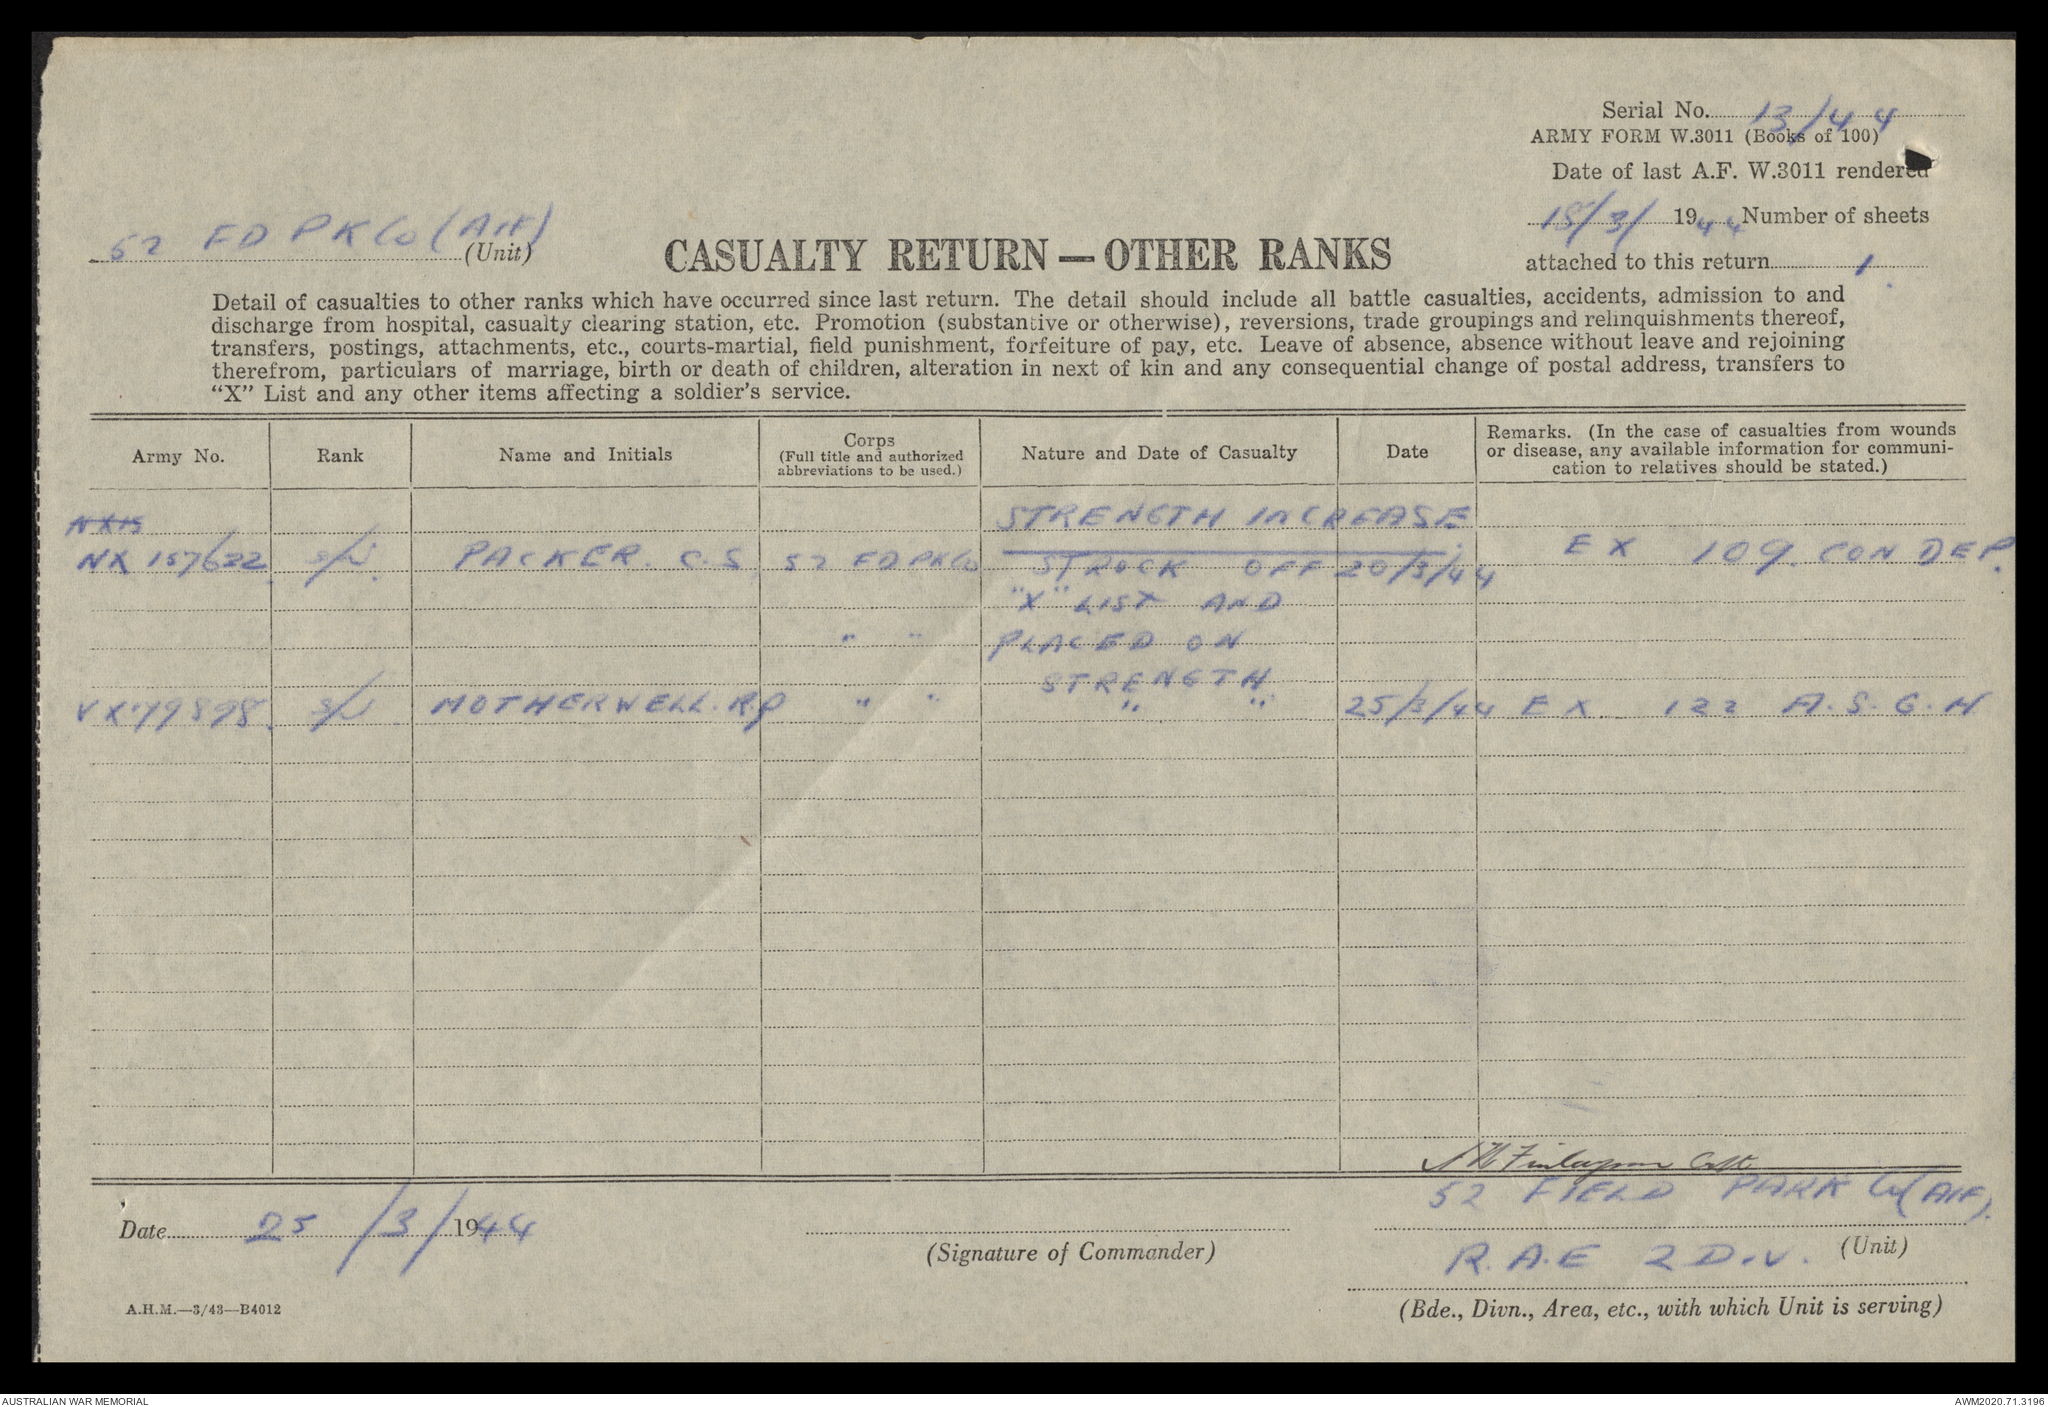 Serial No. 13/44
ARMY FORM W.3011 (Books of 100)
Date of last A.F. W.3011 rendered
18/3/ 1944 Number of sheets
attached to this return 1
52 FD PK Co (AIF)
(Unit)
CASUALTY RETURN — OTHER RANKS
Detail of casualties to other ranks which have occurred since last return. The detail should include all battle casualties, accidents, admission to and
discharge from hospital, casualty clearing station, etc. Promotion (substantive or otherwise), reversions, trade groupings and relinquishments thereof,
transfers, postings, attachments, etc., courts-martial, field punishment, forfeiture of pay, etc. Leave of absence, absence without leave and rejoining
therefrom, particulars of marriage, birth or death of children, alteration in next of kin and any consequential change of postal address, transfers to
“X” List and any other items affecting a soldier’s service.
Army No.
Rank
Name and Initials
Corps
(Full title and authorized
abbreviations to be used.)
Nature and Date of Casualty
Date
Remarks. (In the case of casualties from wounds
or disease, any available information for communi-
cation to relatives should be stated.)
NX15
STRENGTH INCREASE
NX 157622 PACKER. C.S 52 FD PK Co STRUCK OFF 20/3/44 EX 109. CON DEP.
"X" LIST AND
" " PLACED ON
STRENGTH
VX79898. MOTHERWELL. R.P " " " " 25/3/44 EX 122 A.S.G.H
Capt
52 FIELD PARK Coy (AIF).
Date 25/3/1944
(Signature of Commander)
(Unit)
R.A.E 2 Div.
(Bde., Divn., Area, etc., with which Unit is serving)
A.H.M.—3/43—B4012
AUSTRALIAN WAR MEMORIAL
AWM2020.71.3196